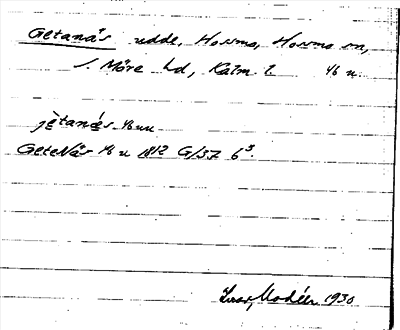 Getanäs udde, Hossmo, Hossmo sn,
S. Möre hd, Kalm. l. ½ u.
jètanés ½ uu
GeteNäs ½ u 1812 G/57 6³.
Ivar Modéer 1930